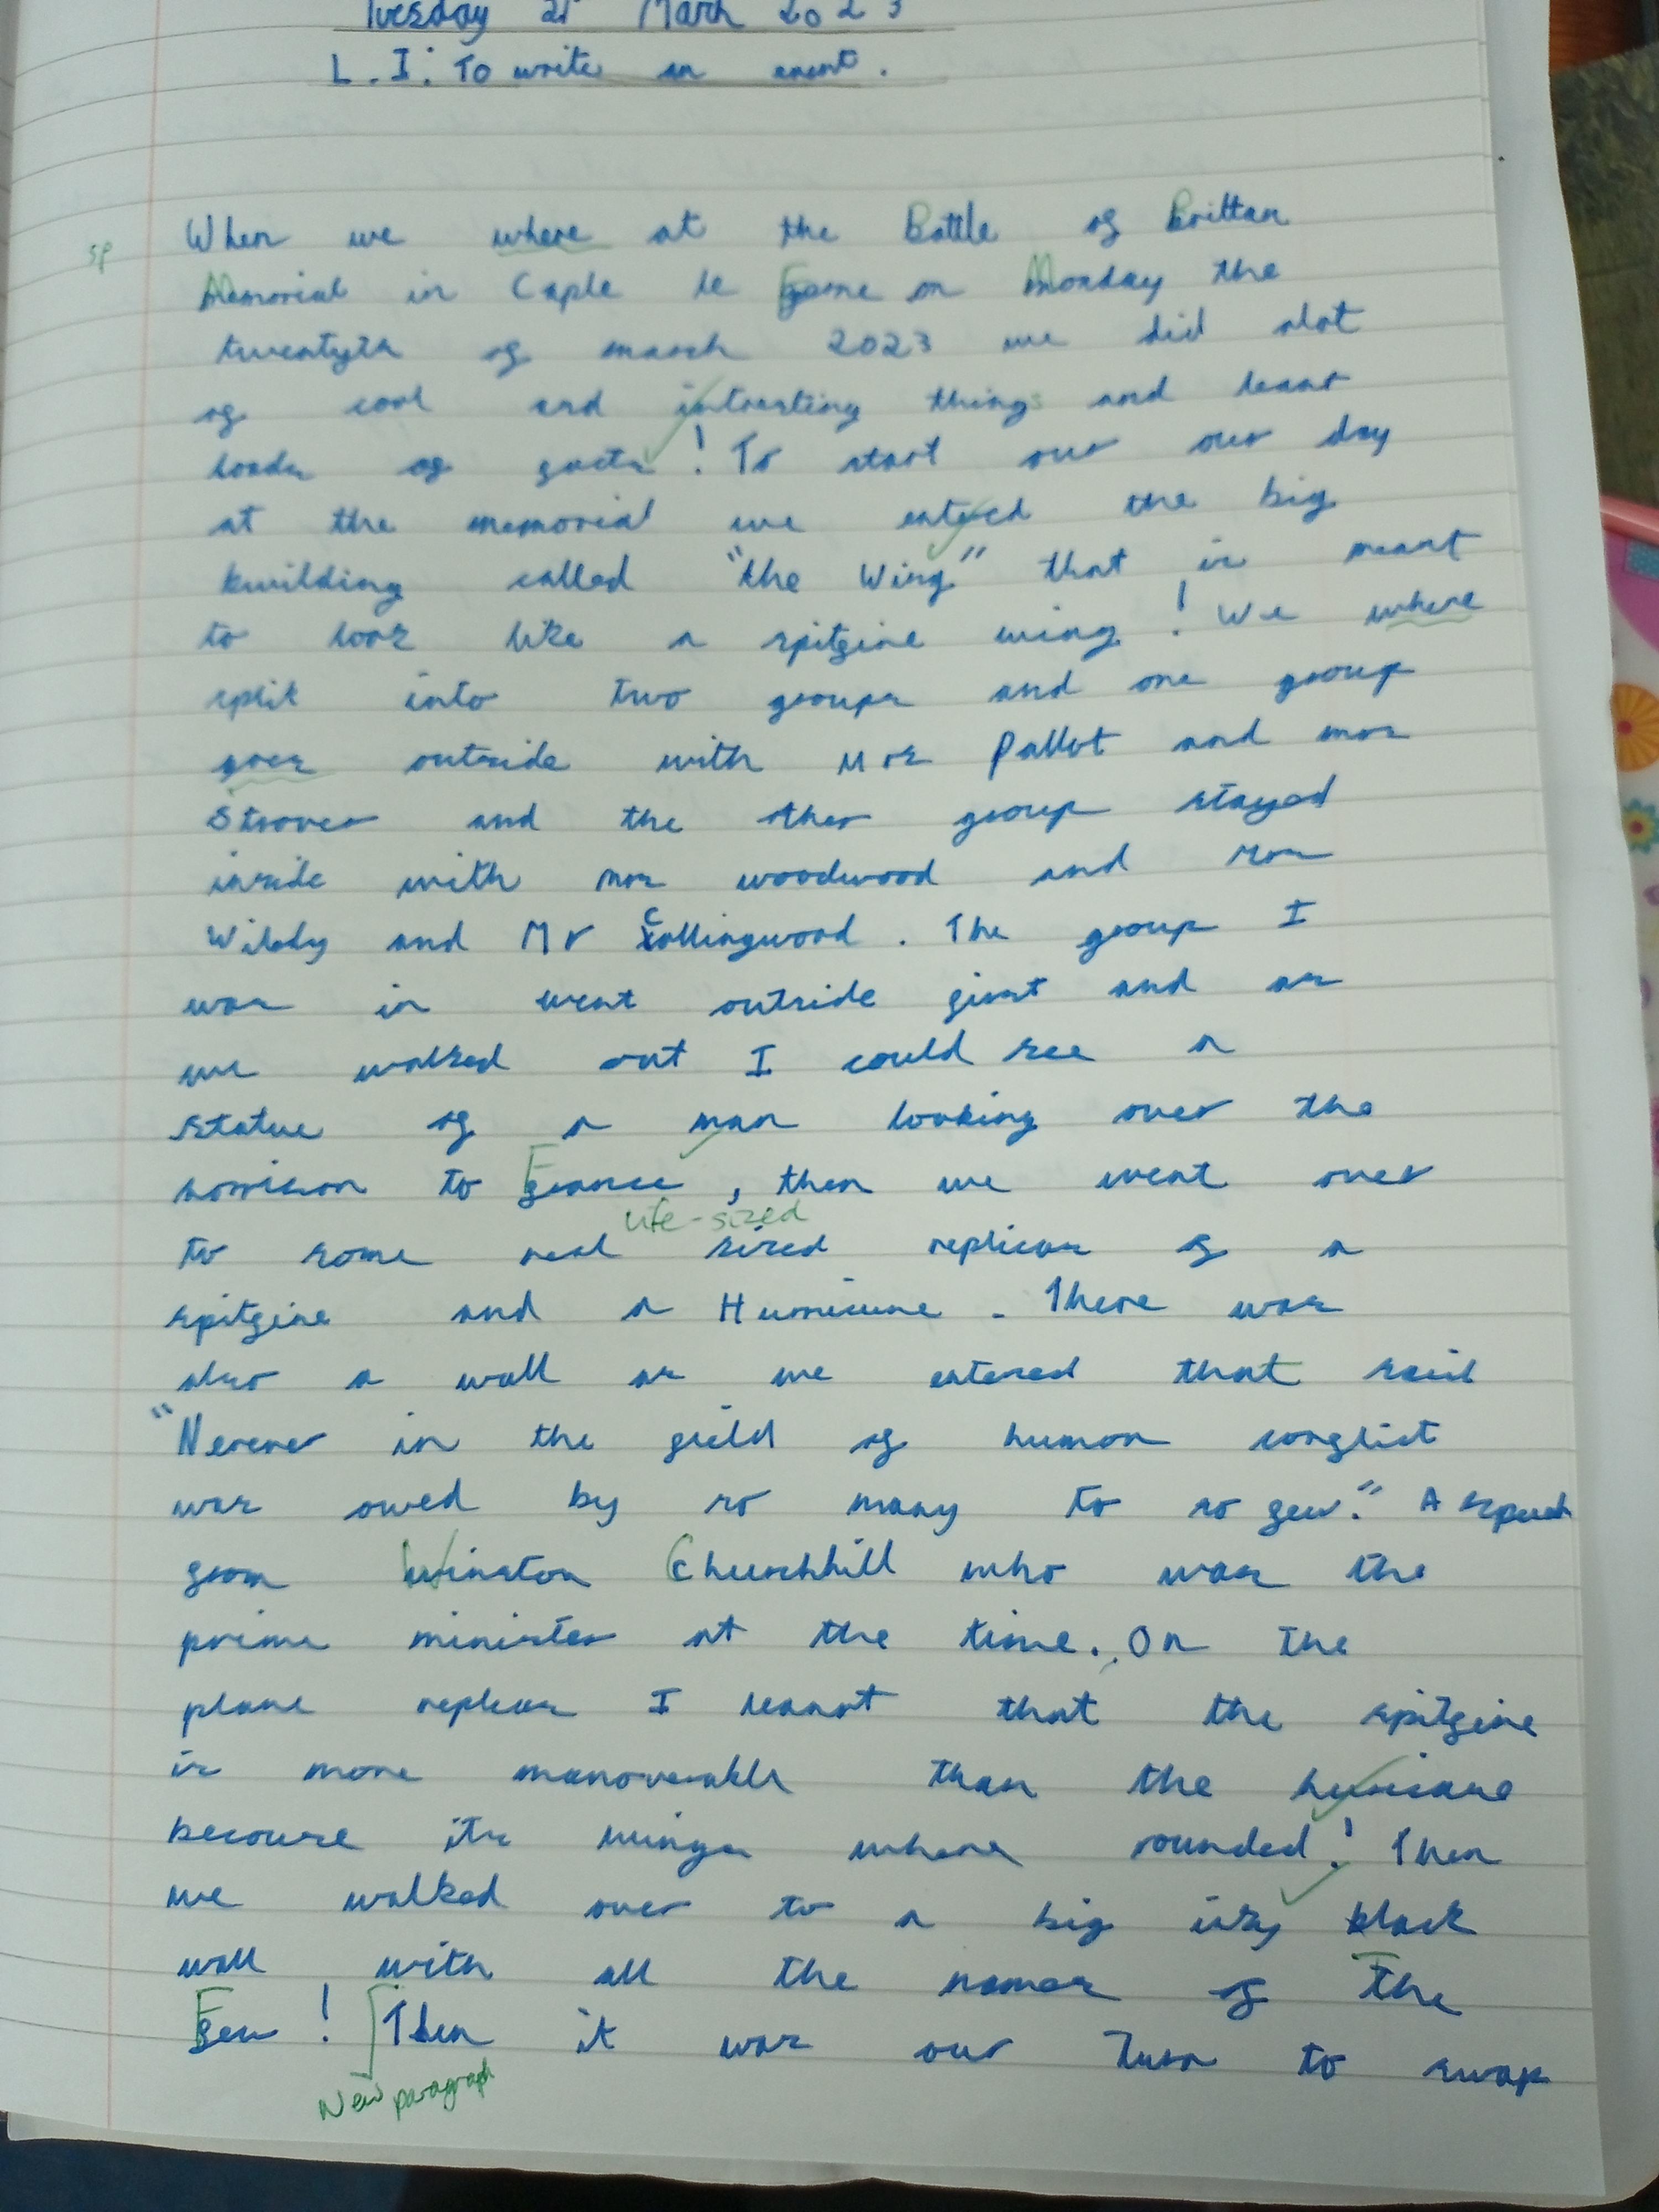 Tuesday 21 March 2023
L.I: To write an event.
sp When we where at the Battle of Brittan
Memorial in Caple le Ferne on Monday the
twentyth of march 2023 we did alot
of cool and intresting things and learnt
loads of facts! To start our our day
at the memorial we enterd the big
building called "the Wing" that is meant
to look like a spitfire wing! We where
split into two groups and one group
goes outside with Mrs Pallot and mrs
Strover and the other group stayed
inside with mrs woodwood and mrs
Wildy and Mr Collingwood. The group I
was in went outside first and as
we walked out I could see a
statue of a man looking over the
horrison to France, then we went over
life-sized
to some real sized replicas of a
spitfire and a Hurricane. There was
also a wall as we entered that said
"Never in the field of human conflict
was owed by so many to so few." A speech
from Winston Churchhill who was the
prime minister at the time. On the
plane replicas I learnt that the spitfire
is more manoverable than the hurricane
because its wings where rounded! Then
we walked over to a big inky black
wall with all the names of The
Few! Then it was our Turn to swap
New paragraph